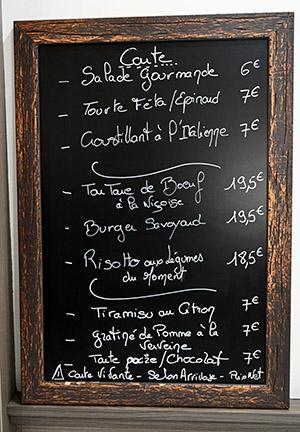 Carte
- Salade Gourmande 6€
- Tourte Féta/Epinard 7€
- Croustillant à l'Italienne 7€
- Tartare de Boeuf 19,5€
à la Niçoise
- Burger Savoyard 19,5€
- Risotto aux légumes 18,5€
du Moment
- Tiramisu au Citron 7€
- Gratiné de Pomme à la 7€
Verveine
Tarte poire/Chocolat 7€
⚠ Carte Vivante - Selon Arrivage - Prix Net